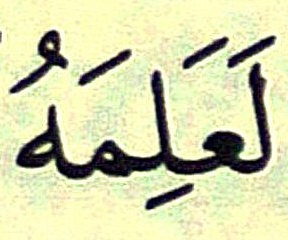 لَعَلِمَهُ